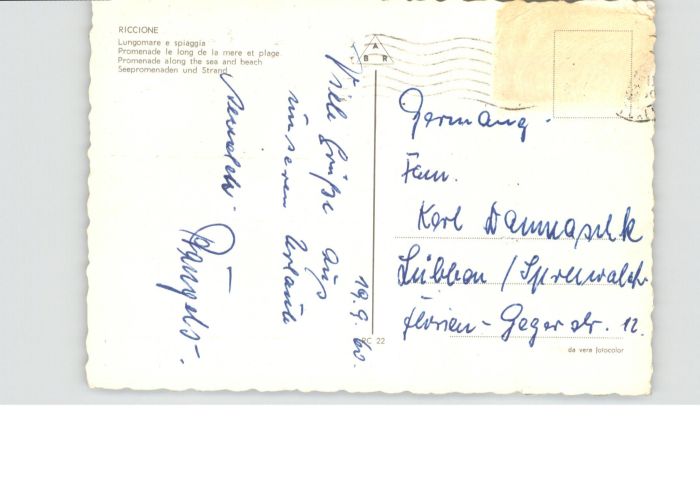 RICCIONE
Lungomare e spiaggia
Promenade le long de la mere et plage
Promenade along the sea and beach
Seepromenaden und Strand
A
B R
19.9.60.
Viele Grüße aus
unseren Urlaub
senden
Germany.
Fam.
Karl
Lübben / Spreewald
Florian-Geyer str. 12.
RC 22
da vera fotocolor